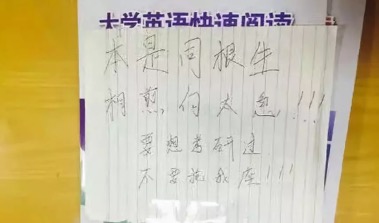 大学英语快速阅读
本是同根生
相煎何太急!!!
要想考研过
不要拖我座!!!